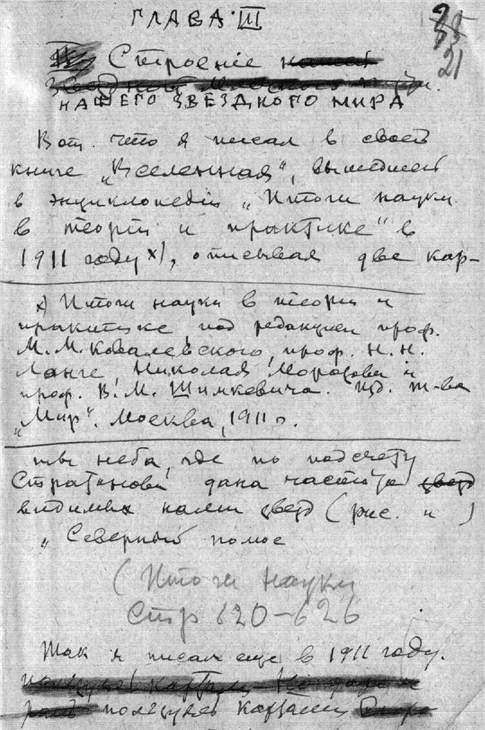 ГЛАВА III
21
Строение
НАШЕГО ЗВЕЗДНОГО МИРА
Вот что я писал в своей
книге „Вселенная“, вышедшей
в энциклопедии „Итоги науки
в теории и практике“ в
1911 году х), описывая две кар-
х) Итоги науки в теории и
практике под редакцией проф.
М. М. Ковалевского, проф. Н. Н.
Ланге Николая Морозова и
проф. В. М. Шимкевича. Изд. т-ва
„Мир“. Москва, 1911 г.
ты неба, где по подсчету
Стратонова дана частота
видимых нами звезд (рис. и )
„Северный полюс
(Итоги науки
Стр 620-626
Так я писал еще в 1911 году.